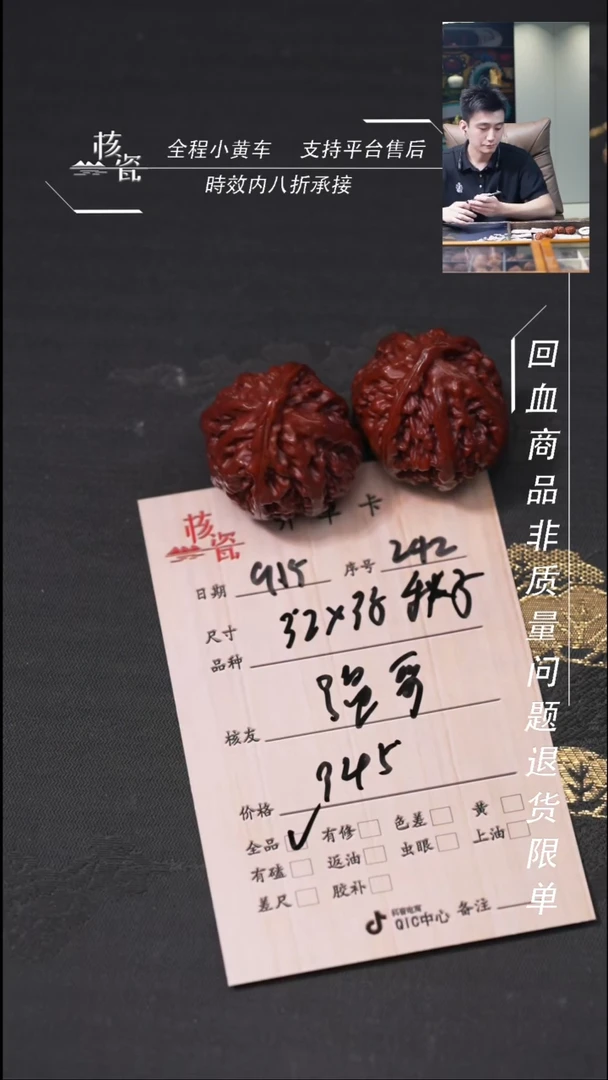 核瓷
全程小黄车 支持平台售后
時效内八折承接
回血商品非质量问题退货限单
核瓷
卡
日期 915 序号 242
尺寸 32×36
品种
核友 强哥
价格 945
全品 ✓ 有修 色差 黄
有磕 返油 虫眼 上油
差尺 胶补
抖音电商
QIC中心 备注